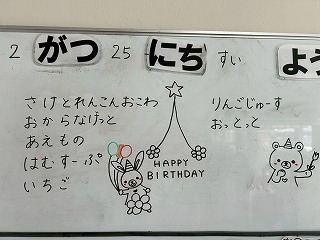 2 がつ 25 にち すい よう
さけとれんこんおこわ
おからなげっと
あえもの
はむすーぷ
いちご
HAPPY
BIRTHDAY
りんごじゅーす
おっとっと